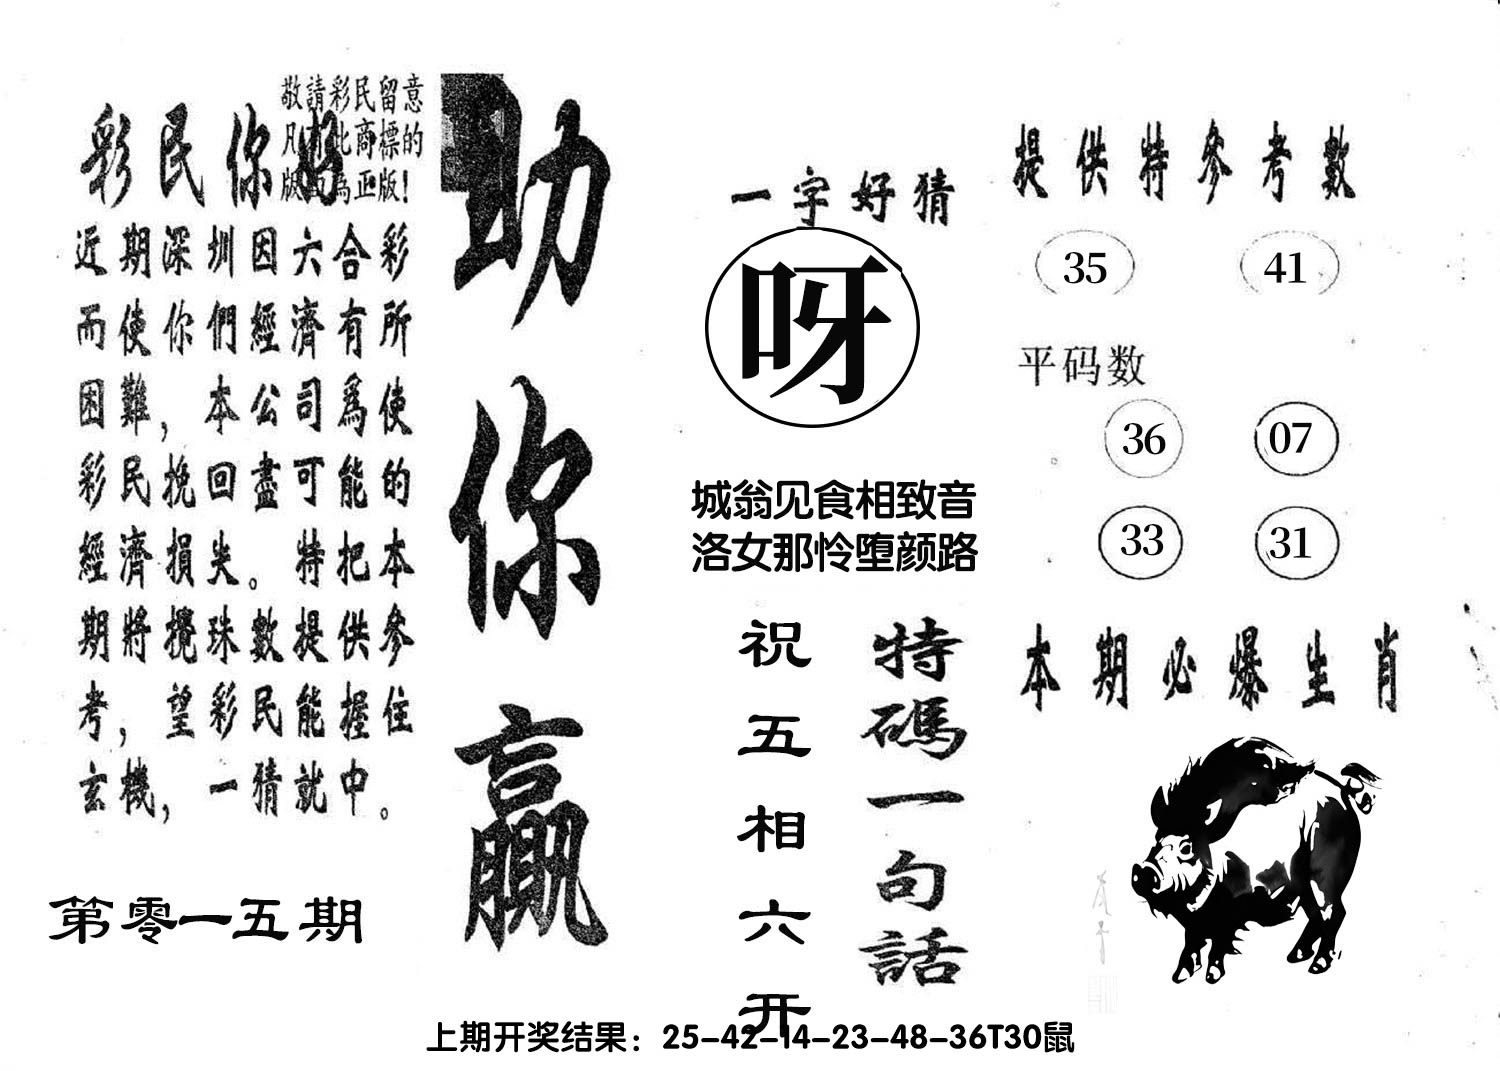 敬請彩民留意
凡有此商標的
版面為正版！
彩民你好
近期深圳因六合彩
而使你們經濟有所
困難，本公司爲使
彩民挽回盡可能的
經濟損失。特把本
期將攪珠數提供參
考，望彩民能握住
玄機，一猜就中。
第零一五期
助你贏
一字好猜
呀
城翁见食相致音
洛女那怜堕颜路
特碼一句話
祝五相六开
提供特參考數
35 41
平码数
36 07
33 31
本期必爆生肖
上期开奖结果：25-42-14-23-48-36T30鼠